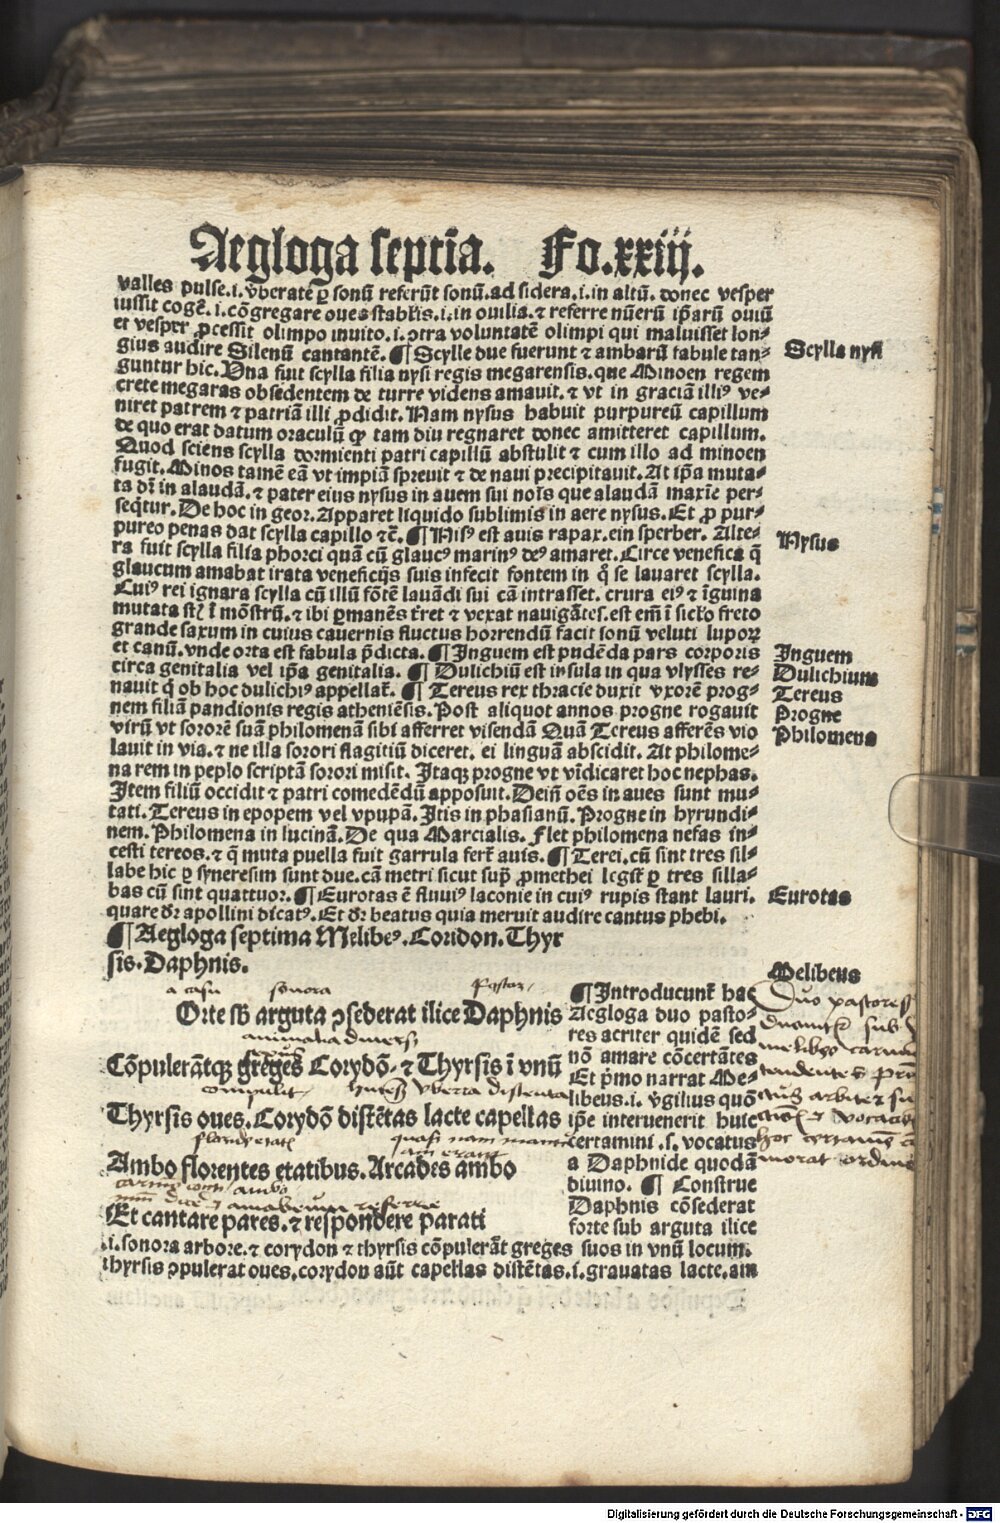 Aegloga septīa. Fo.xxiij.
valles pulse.i.v̄berate ꝑ sonū referūt sonū.ad sidera.i.in altū. donec vesper
iussit cogē.i.cōgregare oues stablis.i.in ouilia.⁊ referre nūerū ip̄arū ouiū
et vesper ꝓcessit olimpo inuito.i.ↄtra voluntatē olimpi qui maluisset lon⸗
gius audire Silenū cantantē.¶ Scylle due fuerunt ⁊ ambarū fabule tan⸗
Scylla nysi
guntur hic. Una fuit scylla filia nysi regis megarensis.que Minoen regem
crete megaras obsedentem de turre videns amauit.⁊ vt in graciā illiꝰ ve⸗
niret patrem ⁊ patriā illi ꝓdidit. Nam nysus habuit purpureū capillum
de quo erat datum oraculū ꝙ tam diu regnaret donec amitteret capillum.
Quod sciens scylla dormienti patri capillū abstulit ⁊ cum illo ad minoen
fugit. Minos tamē eā vt impiā spreuit ⁊ de naui precipitauit. At ip̄a muta⸗
ta dr̄ in alaudā.⁊ pater eius nysus in auem sui nois que alaudā maxie per⸗
seq̄tur. De hoc in geor. Apparet liquido sublimis in aere nysus. Et ꝓ pur⸗
pureo penas dat scylla capillo ⁊c̄.¶ Nisꝰ est auis rapax.ein sperber. Alte⸗
Nysus
ra fuit scylla filia phorci quā cū glaucꝰ marinꝰ deꝰ amaret. Circe venefica q̄
glaucum amabat irata veneficijs suis infecit fontem in q̊ se lauaret scylla.
Cuiꝰ rei ignara scylla cū illū fōtē lauādi sui cā intrasset. crura eiꝰ ⁊ īguina
mutata st̄ ī mōstrū.⁊ ibi ꝑmanēs t̄ret ⁊ vexat nauigātes.est em̄ ī siclo freto
grande saxum in cuius cauernis fluctus horrendū facit sonū veluti lupoꝝ
et canū.vnde orta est fabula p̄dicta.¶ Inguem est pudēda pars corporis
Inguem
circa genitalia vel ip̄a genitalia.¶ Dulichiū est insula in qua vlysses re⸗
Dulichium
nauit q̄ ob hoc dulichiꝰ appellat̄.¶ Tereus rex thracie duxit vxorē prog⸗
Tereus
nem filiā pandionis regis atheniēsis. Post aliquot annos progne rogauit
Progne
virū vt sororē suā philomenā sibi afferret visendā Quā Tereus afferēs vio
Philomena
lauit in via.⁊ ne illa sorori flagitiū diceret. ei linguā abscidit. At philome⸗
na rem in peplo scriptā sorori misit. Itaqꝫ progne vt vīdicaret hoc nephas.
Item filiū occidit ⁊ patri comedēdū apposuit. Dein̄ oēs in aues sunt mu⸗
tati. Tereus in epopem vel vpupā. Itis in phasianū. Progne in hyrundi⸗
nem. Philomena in lucinā. De qua Marcialis. Flet philomena nefas in⸗
cesti tereos.⁊ q̄ muta puella fuit garrula fert̄ auis.¶ Terei.cū sint tres sil⸗
labe hic ꝑ syneresim sunt due.cā metri sicut sup̄ ꝓmethei legit̄ ꝑ tres silla⸗
bas cū sint quattuor.¶ Eurotas ē fluuiꝰ laconie in cuiꝰ rupis stant lauri.
Eurotas
quare dr̄ apollini dicatꝰ. Et dr̄ beatus quia meruit audire cantus phebi.
¶ Aegloga septima Melibeꝰ. Coridon. Thyr
sis. Daphnis.
Melibeus
a casu sonora Pastor
Orte sb̄ arguta ↄsederat ilice Daphnis
animalia diuers
Cōpulerātqꝫ greges Corydō. ⁊ Thyrsis ī vnū
compulit vbera distenta
Thyrsis oues. Corydō distētas lacte capellas
quasi nam
Ambo florentes etatibus. Arcades ambo
Et cantare pares.⁊ respondere parati
¶ Introducunt̄ hac
Aegloga duo pasto⸗
res acriter quidē sed
nō amare cōcertātes
Et p̄mo narrat Me⸗
libeus.i.v̄gilius quō
ip̄e interuenerit huic
certamini .s. vocatus
a Daphnide quodā
diuino. ¶ Construe
Daphnis cōsederat
forte sub arguta ilice
Duo pastores
sub
melibeo
.i. sonora arbore.⁊ corydon ⁊ thyrsis cōpulerāt greges suos in vnū locum.
thyrsis ↄpulerat oues.corydon aūt capellas distētas.i.grauatas lacte.am
Digitalisierung gefördert durch die Deutsche Forschungsgemeinschaft - DFG